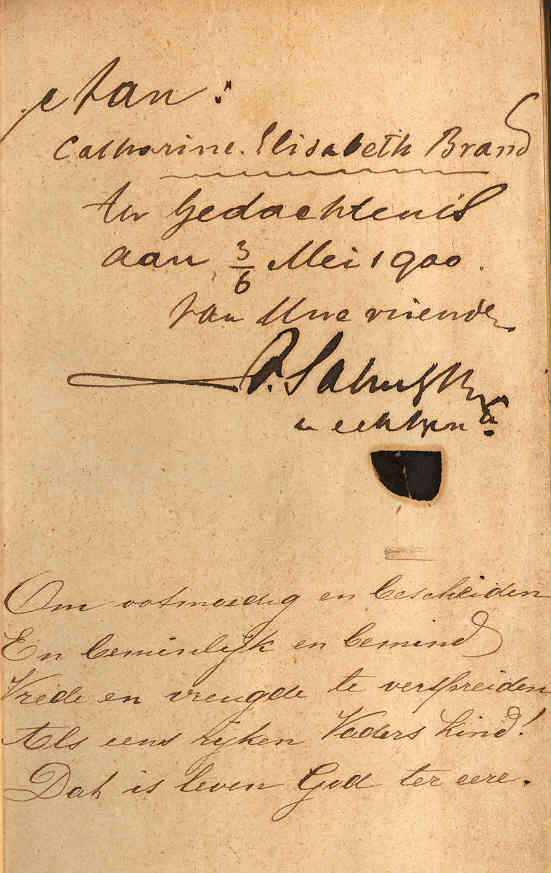 Aan:
Catharine. Elisabeth Brand
ter Gedachtenis
aan 3/6 Mei 1900.
van Uwe vrienden
P.
en echtgen
Om ootmoedig en bescheiden
En beminlijk en bemind
Vrede en vreugde te verspreiden
Als eens rijken Vaders kind!
Dat is leven God ter eere.